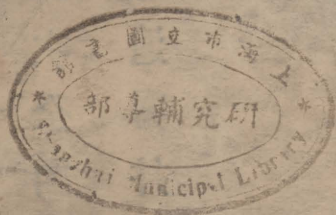 上海市立圖書館
研究輔導部
Shanghai Municipal Library